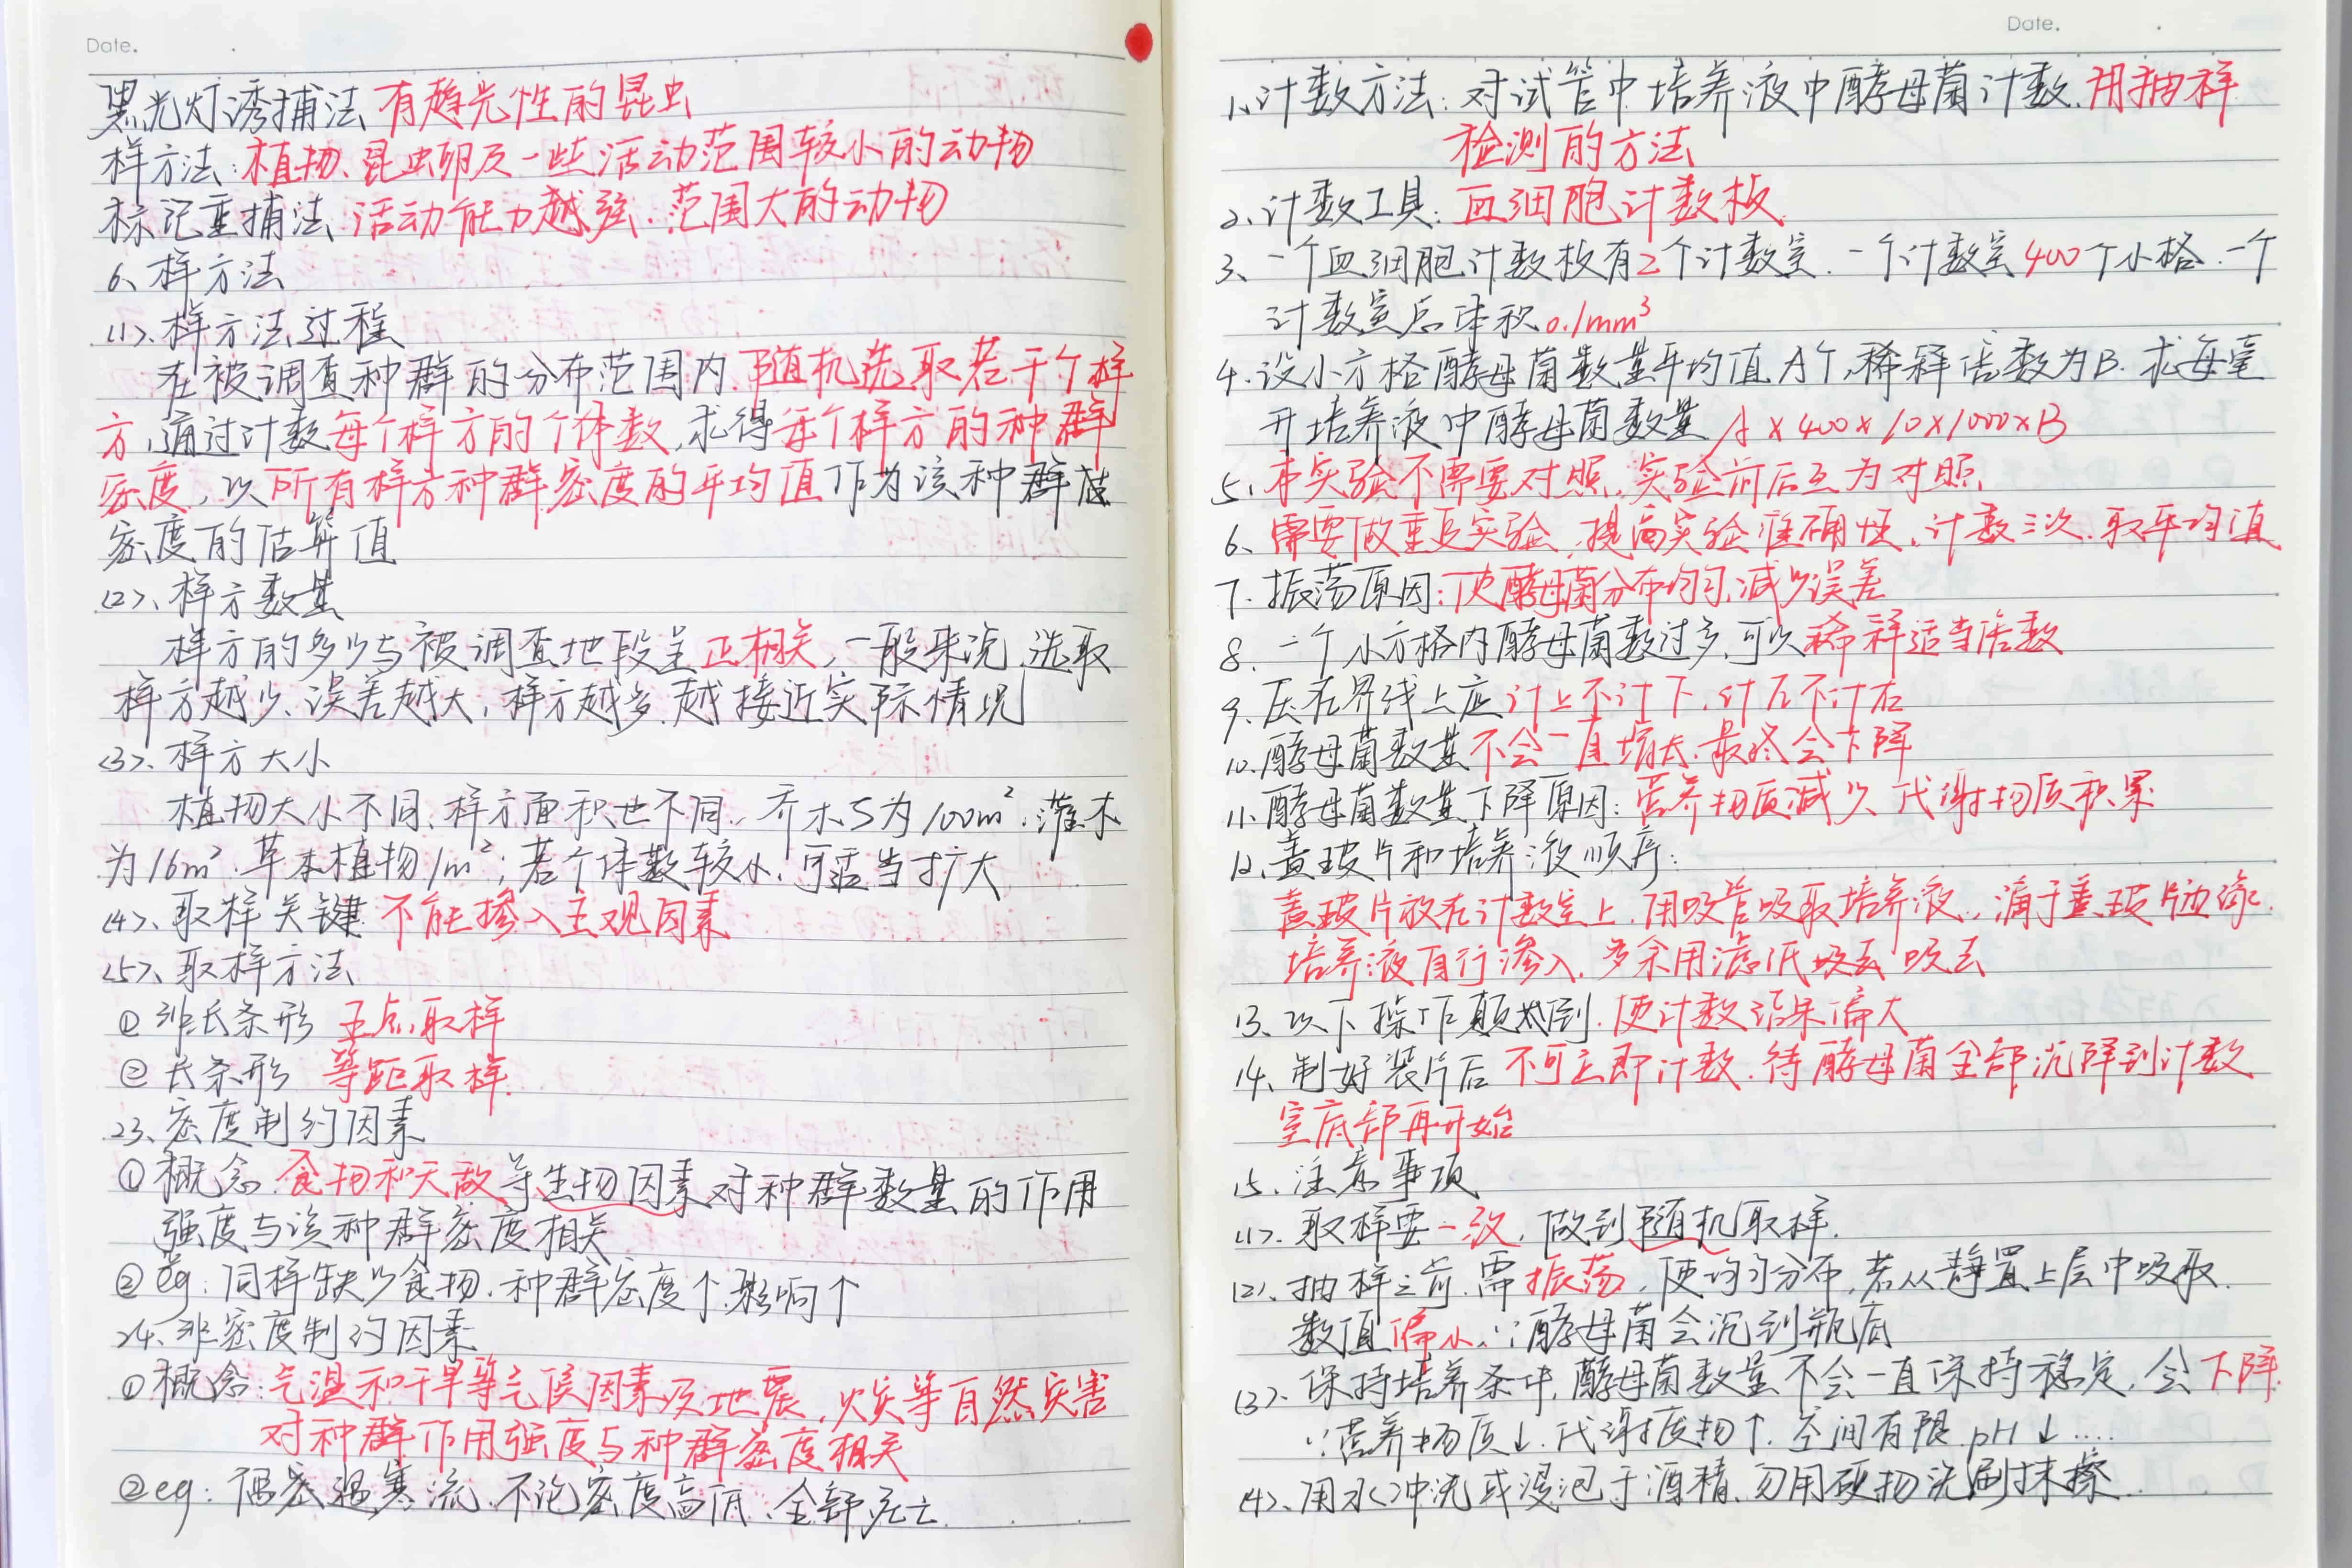 Date.
黑光灯诱捕法 有趋光性的昆虫
样方法:植物、昆虫卵及一些活动范围较小的动物
标记重捕法 活动能力越强、范围大的动物
6、样方法
(1)、样方法过程
在被调查种群的分布范围内,随机选取若干个样
方,通过计数每个样方的个体数,求得每个样方的种群
密度,以所有样方种群密度的平均值作为该种群
密度的估算值
(2)、样方数量
样方的多少与被调查地段呈正相关,一般来说,选取
样方越少、误差越大,样方越多,越接近实际情况
(3)、样方大小
植物大小不同、样方面积也不同,乔木S为100m²,灌木
为16m²、草本植物1m²;若个体数较小,可适当扩大
(4)、取样关键 不能掺入主观因素
(5)、取样方法
① 非长条形 五点取样
② 长条形 等距取样
23、密度制约因素
①概念 食物和天敌等生物因素对种群数量的作用
强度与该种群密度相关
②eg:同样缺少食物,种群密度个影响个
24、非密度制约因素
①概念:气温和干旱等气候因素及地震、火灾等自然灾害
对种群作用强度与种群密度相关
②eg: 遇寒流、不论密度高低、全部死亡
Date.
1、计数方法:对试管中培养液中酵母菌计数,用抽样
检测的方法
2、计数工具:血细胞计数板
3、一个血细胞计数板有2个计数室,一个计数室400个小格,一个
计数室总体积0.1mm³
4.设小方格酵母菌数量平均值A个,稀释倍数为B.求每毫
升培养液中酵母菌数量 A×400×10×1000×B
5、本实验不需要对照,实验前后互为对照
6、需要做重复实验,提高实验准确性,计数三次,取平均值
7.振荡原因:使酵母菌分布均匀,减少误差
8.一个小方格内酵母菌数过多,可以稀释适当倍数
9.压在界线上应计上不计下,计左不计右
10.酵母菌数量不会一直增长,最终会下降
11.酵母菌数量下降原因:营养物质减少、代谢物质积累
12、盖玻片和培养液顺序:
盖玻片放在计数室上,用吸管吸取培养液,滴于盖玻片边缘,
培养液自行渗入,多余用滤纸吸去
13、以下操作颠倒,使计数结果偏大
14、制好装片后不可立即计数,待酵母菌全部沉降到计数
室底部再开始
15、注意事项
(1)、取样要一致,做到随机取样.
(2)、抽样之前,需振荡,使均匀分布,若从静置上层中吸取,
数值偏小,∵酵母菌会沉到瓶底
(3)、保持培养条件,酵母菌数量不会一直保持稳定,会下降
∵营养物质↓,代谢废物↑,空间有限,pH↓....
(4)、用水冲洗或浸泡于酒精、勿用硬物洗刷抹擦